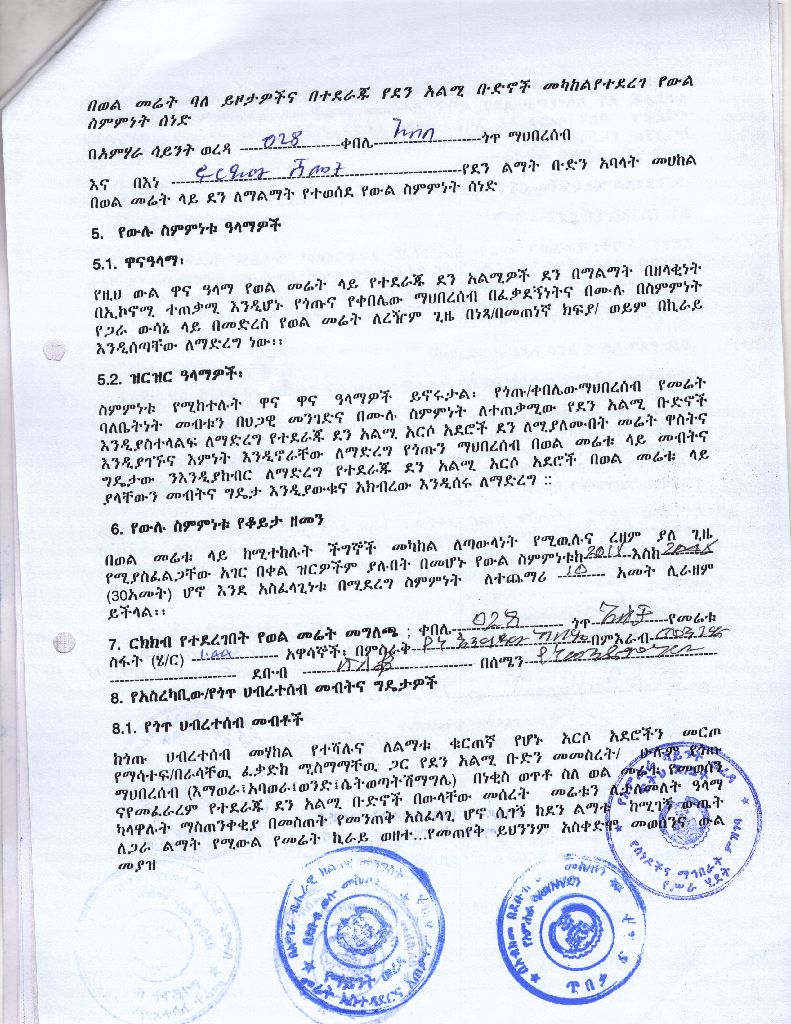 በወል መሬት ባለ ይዞታዎችና በተደራጁ የደን አልሚ ቡድኖች መካከልየተደረገ የውል
ስምምነት ሰነድ
በአምሃራ ሳይንት ወረዳ 028 ቀበሌ ጎጥ ማህበረሰብ
እና በእነ የደን ልማት ቡድን አባላት መሀከል
በወል መሬት ላይ ደን ለማልማት የተወሰደ የውል ስምምነት ሰነድ
5. የውሉ ስምምነቱ ዓላማዎች
5.1. ዋናዓላማ፡
የዚህ ውል ዋና ዓላማ የወል መሬት ላይ የተደራጁ ደን አልሚዎች ደን በማልማት በዘላቂነት
በኢኮኖሚ ተጠቃሚ እንዲሆኑ የጎጡና የቀበሌው ማህበረሰብ በፈቃደኝነትና በሙሉ በስምምነት
የጋራ ውሳኔ ላይ በመድረስ የወል መሬት ለረዥም ጊዜ በነጻ/በመጠነኛ ክፍያ/ ወይም በኪራይ
እንዲሰጣቸው ለማድረግ ነው፡፡
5.2. ዝርዝር ዓላማዎች፡
ስምምነቱ የሚከተሉት ዋና ዋና ዓላማዎች ይኖሩታል፡ የጎጡ/ቀበሌውማህበረሰብ የመሬት
ባለቤትነት መብቱን በህጋዊ መንገድና በሙሉ ስምምነት ለተጠቃሚው የደን አልሚ ቡድኖች
እንዲያስተላልፍ ለማድረግ የተደራጁ ደን አልሚ አርሶ አደሮች ደን ለሚያለሙበት መሬት ዋስትና
እንዲያገኙና እምነት እንዲኖራቸው ለማድረግ የጎጡን ማህበረሰብ በወል መሬቱ ላይ መብትና
ግዴታው ንእንዲያከብር ለማድረግ የተደራጁ ደን አልሚ አርሶ አደሮች በወል መሬቱ ላይ
ያላቸውን መብትና ግዴታ እንዲያውቁና አክብረው እንዲሰሩ ለማድረግ ።
6. የውሉ ስምምነቱ የቆይታ ዘመን
በወል መሬቱ ላይ ከሚተከሉት ችግኞች መካከል ለጣውላነት የሚውሉና ረዘም ያለ ጊዜ
የሚያስፈልጋቸው አገር በቀል ዝርዎችም ያሉበት በመሆኑ የውል ስምምነቱከ 2018 እስከ
(30አመት) ሆኖ እንደ አስፈላጊነቱ በሚደረግ ስምምነት ለተጨማሪ 10 አመት ሊራዘም
ይችላል፡፡
7. ርክክብ የተደረገበት የወል መሬት መግለጫ ; ቀበሌ 028 ጎጥ የመሬቱ
ስፋት (ሄ/ር) አዋሳኞች፡ በምስራቅ በምእራብ
ደቡብ በሰሜን
8. የአስረካቢው/የጎጥ ህብረተሰብ መብትና ግዴታዎች
8.1. የጎጥ ህብረተሰብ መብቶች
ከጎጡ ህብረተሰብ መሃከል የተሻሉና ለልማቱ ቁርጠኛ የሆኑ አርሶ አደሮችን መርጦ
የማሳተፍ/በራሳቸዉ ፈቃድከ ሚስማማቸዉ ጋር የደን አልሚ ቡድን መመስረት/ ሁሉም የጎጡ
ማህበረሰብ (እማወራ፣አባወራ፣ወንድ፣ሴትወጣት፣ሽማግሌ) በነቂስ ወጥቶ ስለ ወል መሬቱ የመወሰን
ናየመፈራረም የተደራጁ ደን አልሚ ቡድኖች በውላቸው መሰረት መሬቱን ለታለመለት ዓላማ
ካላዋሉት ማስጠንቀቂያ በመስጠት የመንጠቅ አስፈላጊ ሆኖ ሲገኝ ከደን ልማቱ ከሚገኝ ውጤት
ለጋራ ልማት የሚውል የመሬት ኪራይ ወዘተ...የመጠየቅ ይህንንም አስቀድሞ መወሰንና ውል
መያዝ